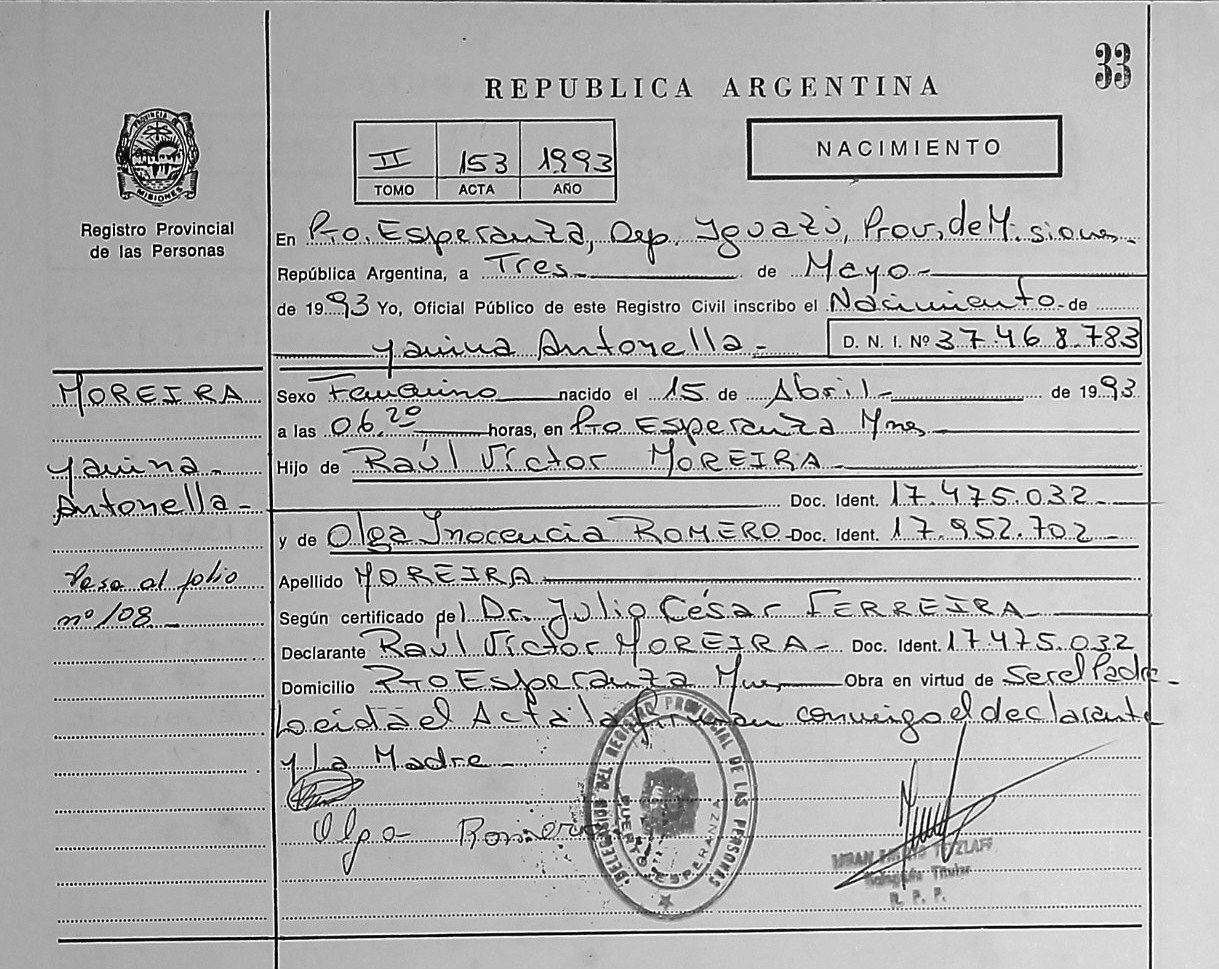 33
REPUBLICA ARGENTINA
PROVINCIA DE
MISIONES
Registro Provincial
de las Personas
II 153 1993
TOMO ACTA AÑO
NACIMIENTO
En Pto. Esperanza, Dep. Iguazú, Prov. de Misiones
República Argentina, a Tres de Mayo
de 1993 Yo, Oficial Público de este Registro Civil inscribo el Nacimiento de
Yanina Antonella D. N. I. Nº 37.468.783
MOREIRA
Yanina
Antonella
Pasa al folio
nº 108
Sexo Femenino nacido el 15 de Abril de 1993
a las 06.20 horas, en Pto Esperanza Mnes
Hijo de Raúl Víctor MOREIRA
Doc. Ident. 17.475.032
y de Olga Inocencia ROMERO Doc. Ident. 17.952.702
Apellido MOREIRA
Según certificado del Dr. Julio César FERREIRA
Declarante Raúl Víctor MOREIRA Doc. Ident. 17.475.032
Domicilio Pto Esperanza Mnes Obra en virtud de Ser el Padre
Leída el Acta la firman conmigo el declarante
y La Madre
Olga Romero
DELEGACION DEL REGISTRO PROVINCIAL DE LAS PERSONAS
PUERTO ESPERANZA
Delegado Titular
R. P. P.